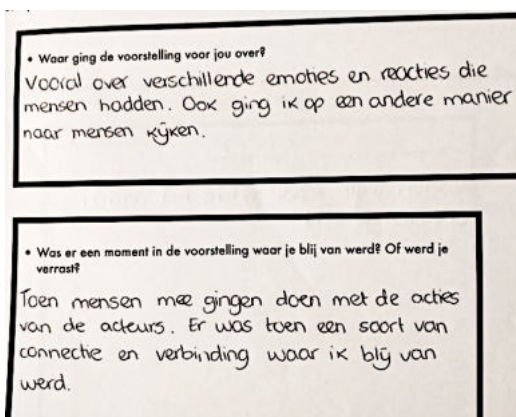 • Waar ging de voorstelling voor jou over?
Vooral over verschillende emoties en reacties die
mensen hadden. Ook ging ik op een andere manier
naar mensen kijken.
• Was er een moment in de voorstelling waar je blij van werd? Of werd je
verrast?
Toen mensen mee gingen doen met de acties
van de acteurs. Er was toen een soort van
connectie en verbinding waar ik blij van
werd.